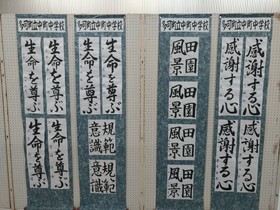 多可町立中町中学校
生命を尊ぶ
生命を尊ぶ
生命を尊ぶ
生命を尊ぶ
多可町立中町中学校
生命を尊ぶ
生命を尊ぶ
規範
意識
規範
意識
多可町立中町中学校
田園
風景
田園
風景
田園
風景
田園
風景
多可町立中町中学校
感謝する心
感謝する心
感謝する心
感謝する心